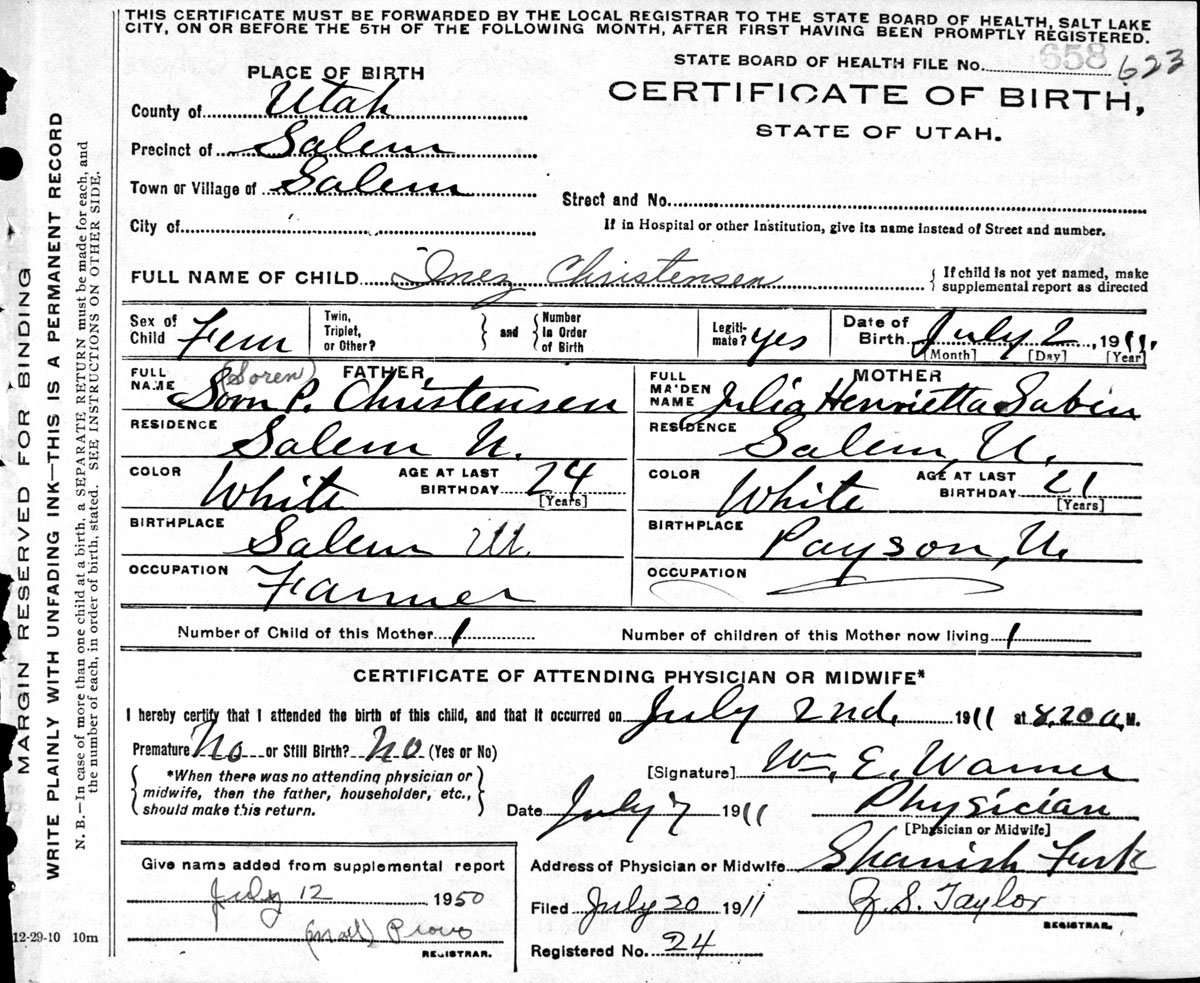 THIS CERTIFICATE MUST BE FORWARDED BY THE LOCAL REGISTRAR TO THE STATE BOARD OF HEALTH, SALT LAKE
CITY, ON OR BEFORE THE 5TH OF THE FOLLOWING MONTH, AFTER FIRST HAVING BEEN PROMPTLY REGISTERED.
STATE BOARD OF HEALTH FILE No. 658 623
CERTIFICATE OF BIRTH,
STATE OF UTAH.
PLACE OF BIRTH
County of Utah
Precinct of Salem
Town or Village of Salem
Street and No.
City of
If in Hospital or other Institution, give its name instead of Street and number.
FULL NAME OF CHILD Inez Christensen
If child is not yet named, make
supplemental report as directed
Sex of Child Fem
Twin, Triplet, or Other? and Number in Order of Birth
Legitimate? yes
Date of Birth July 2, 1911.
[Month] [Day] [Year]
FATHER
FULL NAME (Soren)
Sorn P. Christensen
MOTHER
FULL MAIDEN NAME Julia Henrietta Sabin
RESIDENCE Salem U.
RESIDENCE Salem, U.
COLOR White AGE AT LAST BIRTHDAY 24 [Years]
COLOR White AGE AT LAST BIRTHDAY 21 [Years]
BIRTHPLACE Salem U.
BIRTHPLACE Payson, U.
OCCUPATION Farmer
OCCUPATION
Number of Child of this Mother 1 Number of children of this Mother now living 1
CERTIFICATE OF ATTENDING PHYSICIAN OR MIDWIFE*
I hereby certify that I attended the birth of this child, and that it occurred on July 2nd. 1911 at 8,20 a, M.
Premature No or Still Birth? No (Yes or No)
*When there was no attending physician or
midwife, then the father, householder, etc.,
should make this return.
[Signature] Wm. E. Warner
Date July 7 1911 Physician
[Physician or Midwife]
Give name added from supplemental report
July 12 1950
(mail) Provo
REGISTRAR.
Address of Physician or Midwife Spanish Fork
Filed July 20 1911 Z. S. Taylor
REGISTRAR.
Registered No. 24
12-29-10 10m
MARGIN RESERVED FOR BINDING
WRITE PLAINLY WITH UNFADING INK—THIS IS A PERMANENT RECORD
N. B.—In case of more than one child at a birth, a SEPARATE RETURN must be made for each, and
the number of each, in order of birth, stated. SEE INSTRUCTIONS ON OTHER SIDE.